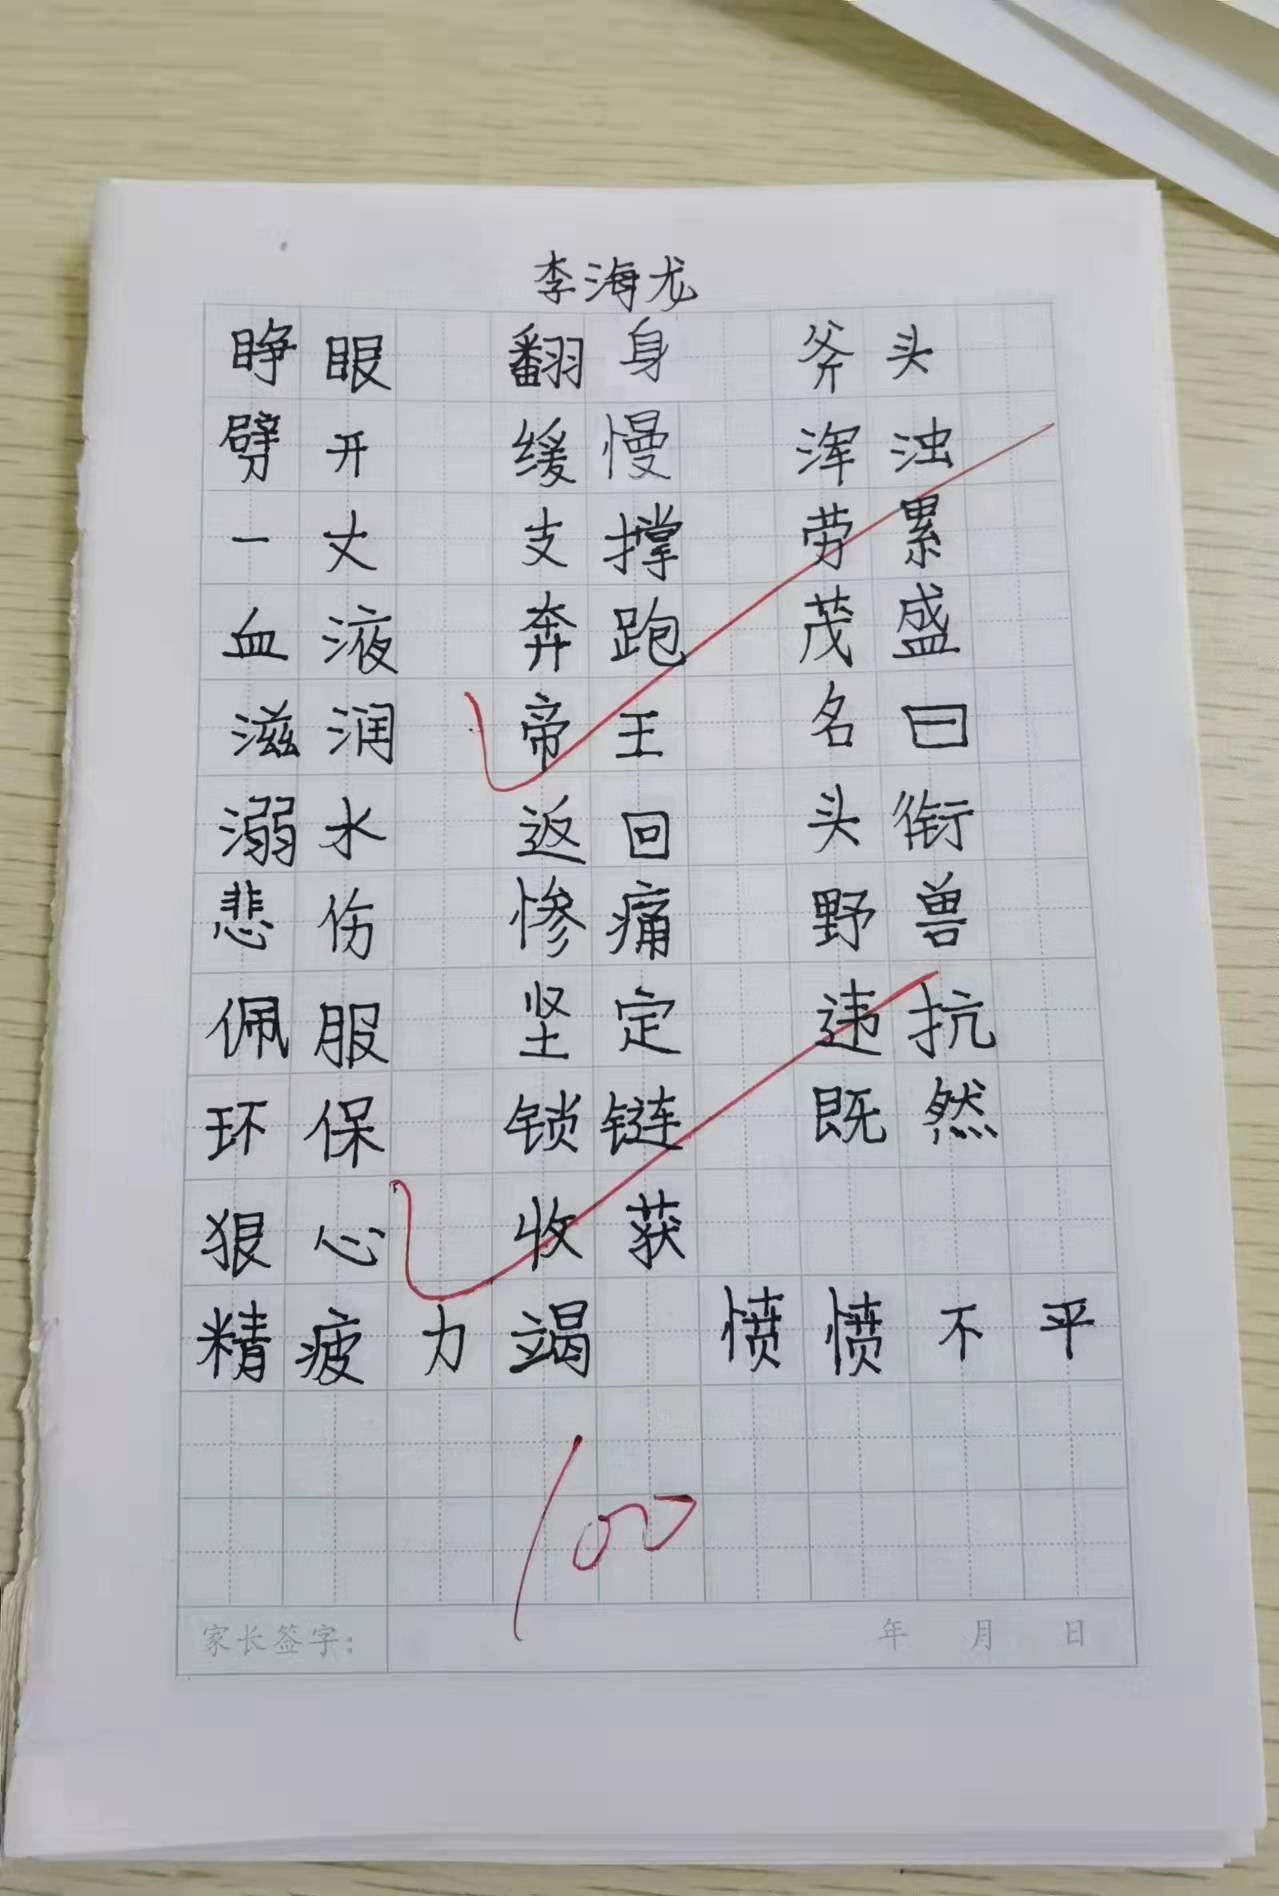 李海龙
睁眼 翻身 斧头
劈开 缓慢 浑浊
一丈 支撑 劳累
血液 奔跑 茂盛
滋润 帝王 名曰
溺水 返回 头衔
悲伤 惨痛 野兽
佩服 坚定 违抗
环保 锁链 既然
狠心 收获
精疲力竭 愤愤不平
100
家长签字： 年 月 日